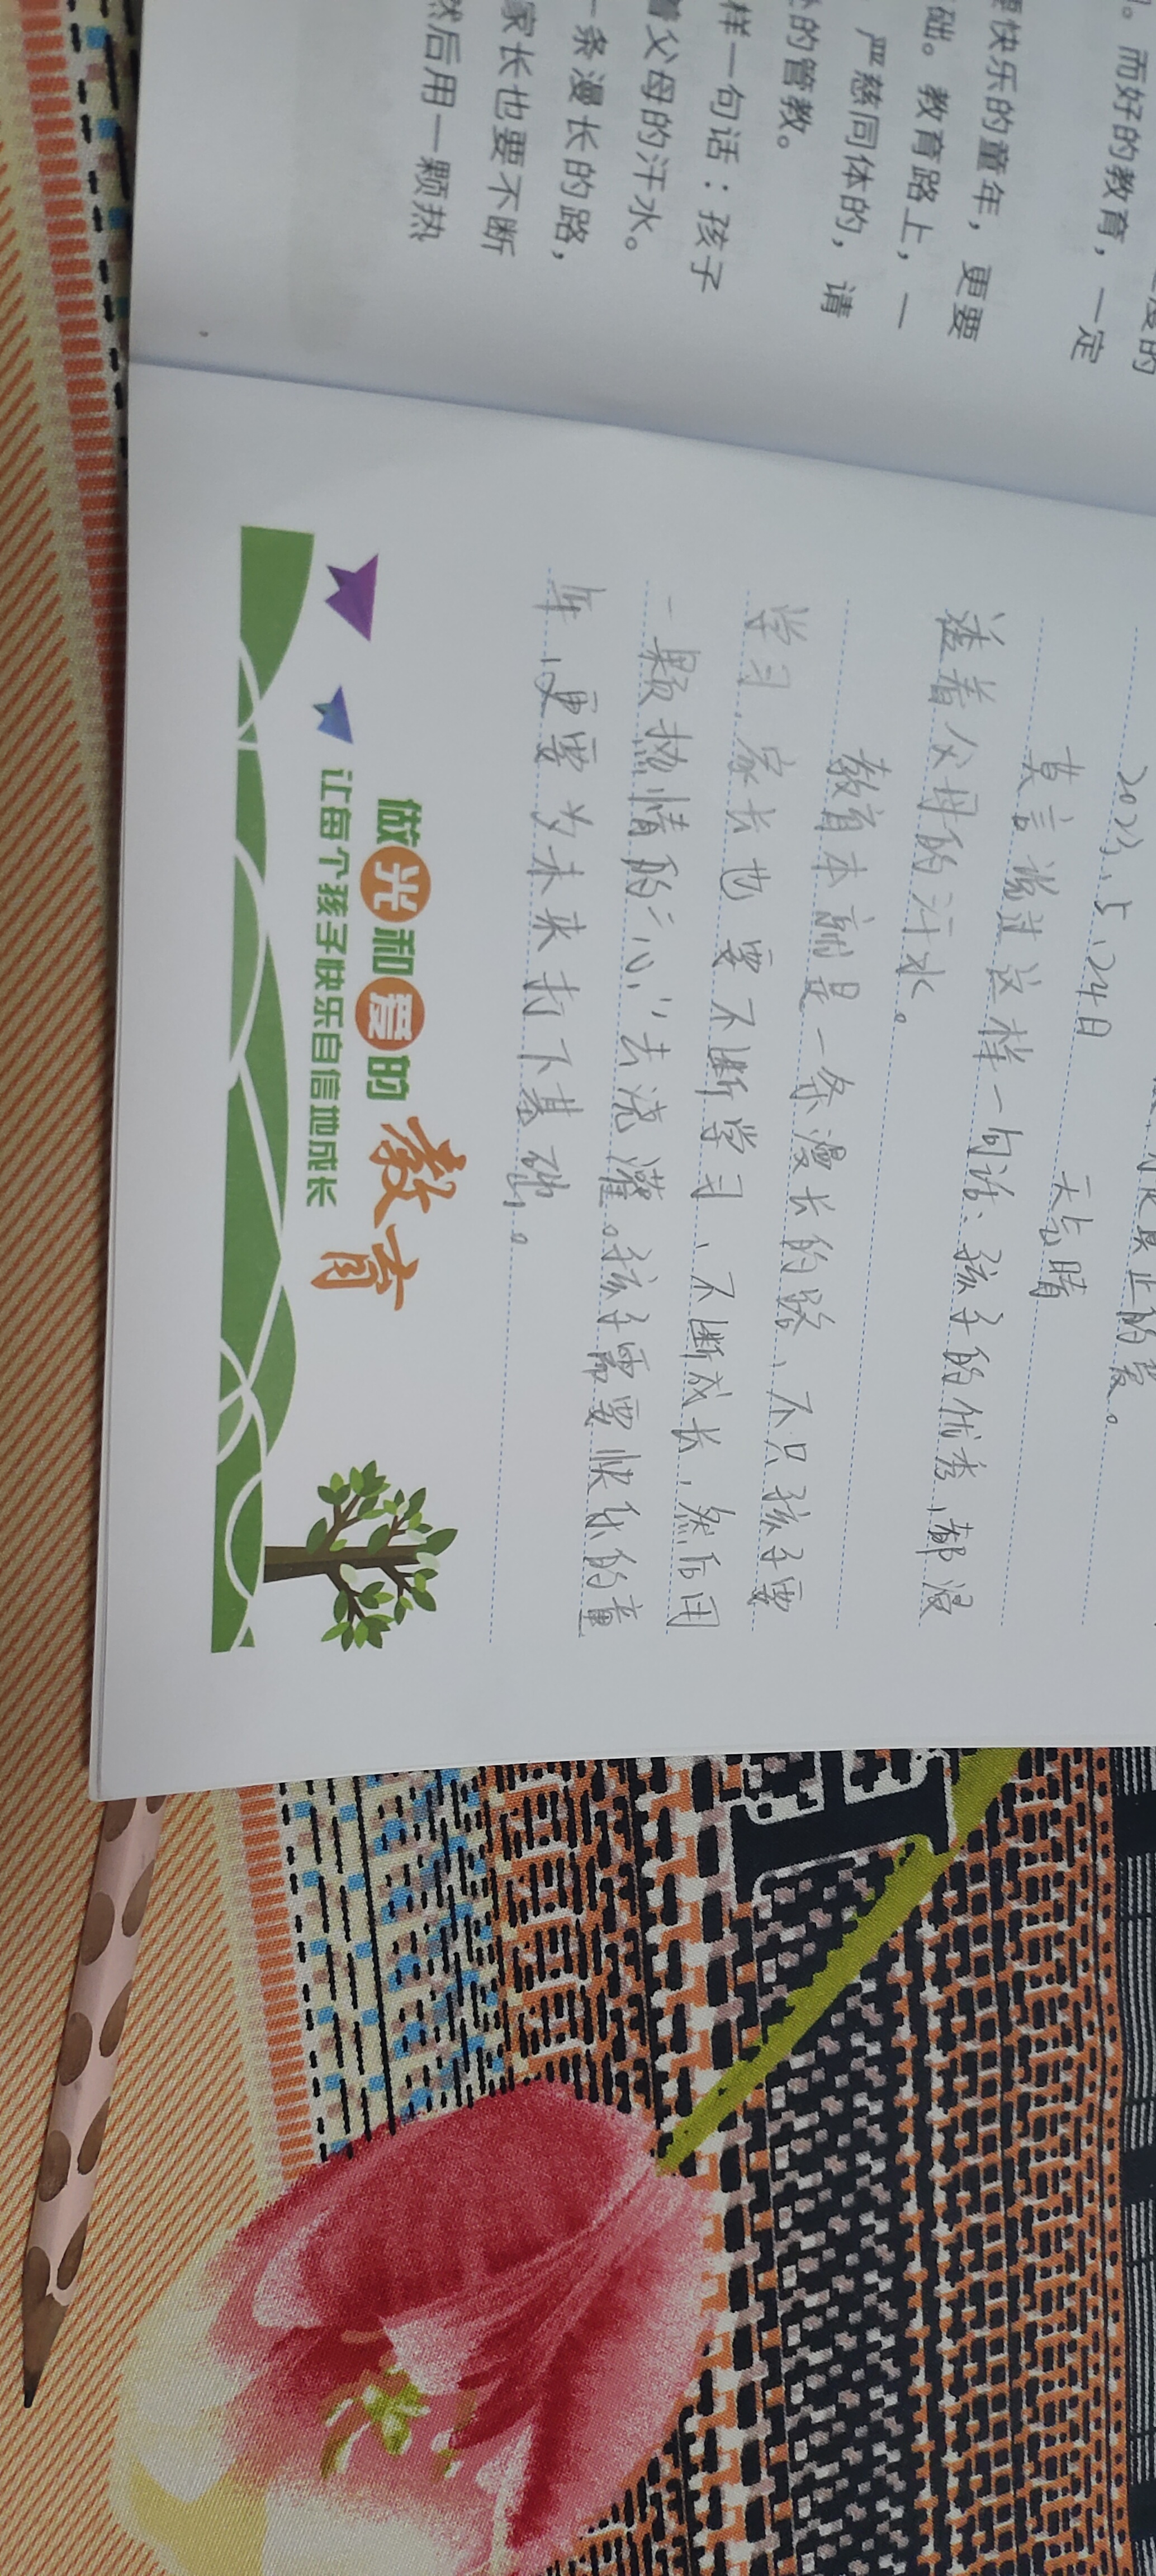 漫的
。而好的教育，一定
要快乐的童年，更要
础。教育路上，一
严慈同体的，请
的管教。
样一句话：孩子
着父母的汗水。
一条漫长的路，
家长也要不断
然后用一颗热
真正的爱。
5、24日 天气晴
莫言说过这样一句话：孩子的优秀，都浸
透着父母的汗水。
教育本就是一条漫长的路、不只孩子要
学习，家长也要不断学习、不断成长，然后用
一颗热情的心去浇灌。孩子需要快乐的童
年，更要为未来打下基础。
做光和爱的教育
让每个孩子快乐自信地成长